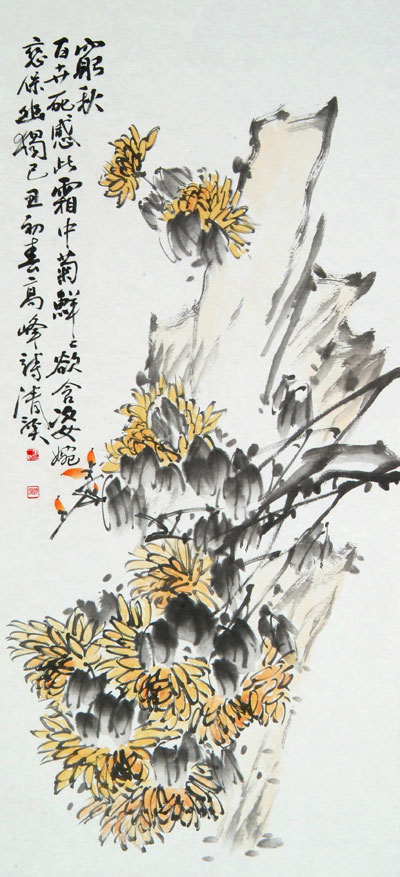 窮秋
百卉死感此霜中菊鮮〻欲含姿婉
恋保幽獨己丑初春高峰